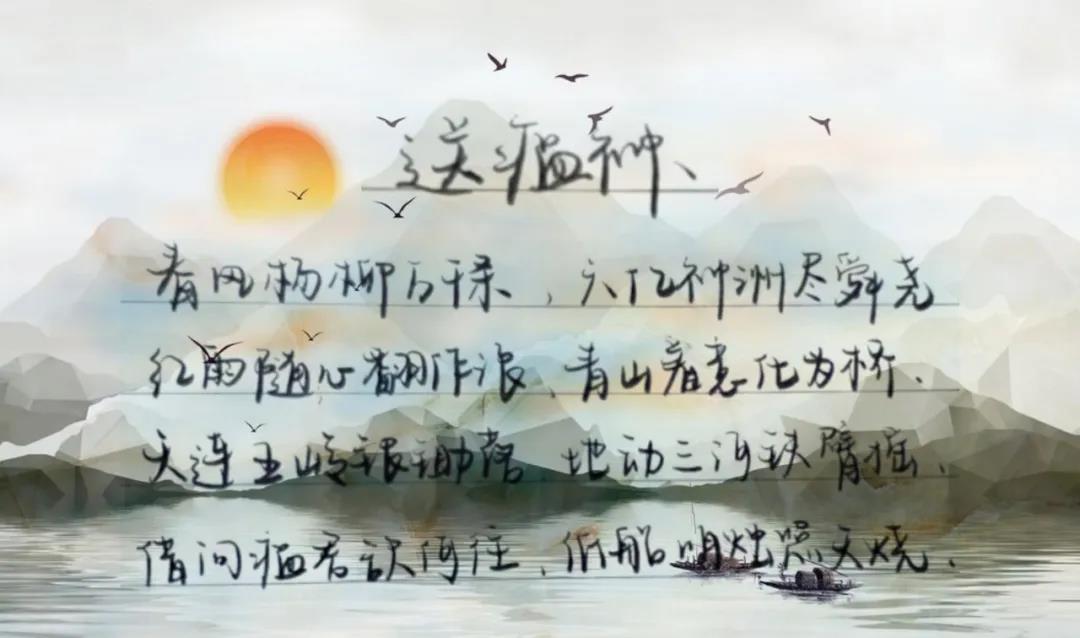 送瘟神、
春风杨柳万千条、六亿神洲尽舜尧
红雨随心翻作浪、青山着意化为桥、
天连五岭银锄落 地动三河铁臂摇、
借问瘟君欲何往、纸船明烛照天烧、